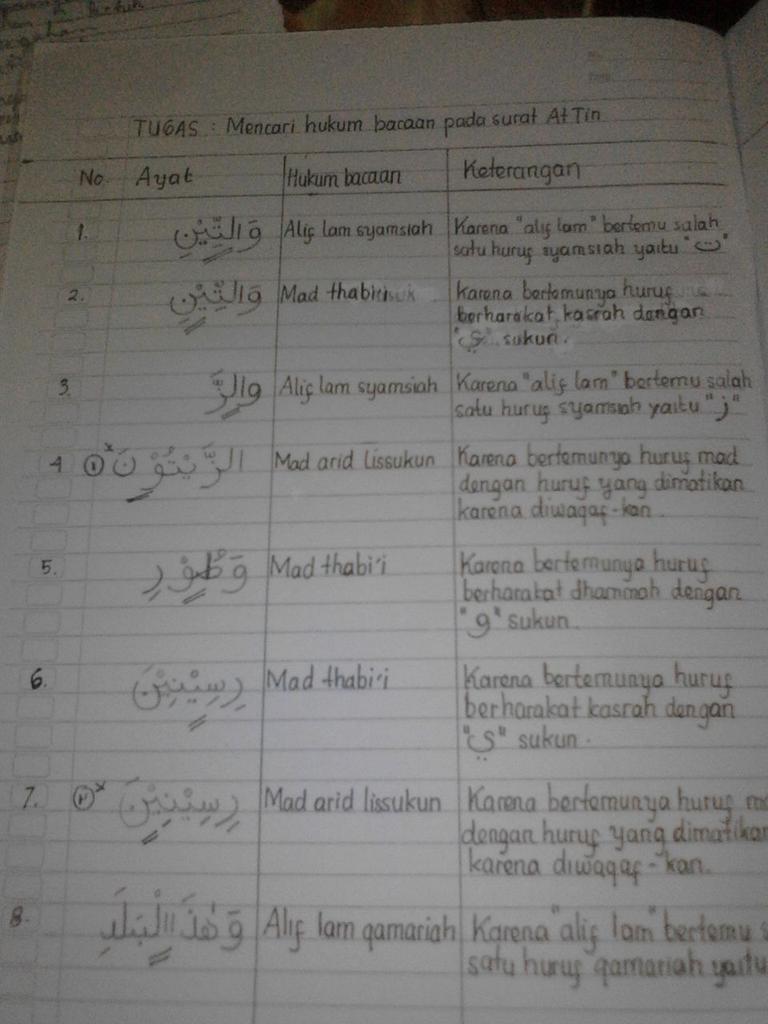 TUGAS : Mencari hukum bacaan pada surat At Tin
No. Ayat Hukum bacaan Keterangan
1. وَالتِّيْنِ Alif lam syamsiah Karena "alif lam" bertemu salah
satu huruf syamsiah yaitu "ت"
2. وَالتِّيْنِ Mad thabi'i Karena bertemunya huruf
berharakat kasrah dengan
"ي" sukun.
3. والزَّ Alif lam syamsiah Karena "alif lam" bertemu salah
satu huruf syamsiah yaitu "ز"
4 ①× الزَّيْتُوْنَ Mad arid lissukun Karena bertemunya huruf mad
dengan huruf yang dimatikan
karena diwaqaf-kan
5. وَطُوْرِ Mad thabi'i Karena bertemunya huruf
berharakat dhammah dengan
"و" sukun.
6. رِسِيْنِيْنَ Mad thabi'i Karena bertemunya huruf
berharakat kasrah dengan
"ي" sukun.
7. ②× رِسِيْنِيْنَ Mad arid lissukun Karena bertemunya huruf
dengan huruf yang dimatikan
karena diwaqaf-kan.
8. وَهٰذَاالْبَلَدِ Alif lam qamariah Karena "alif lam" bertemu
satu huruf qamariah yaitu